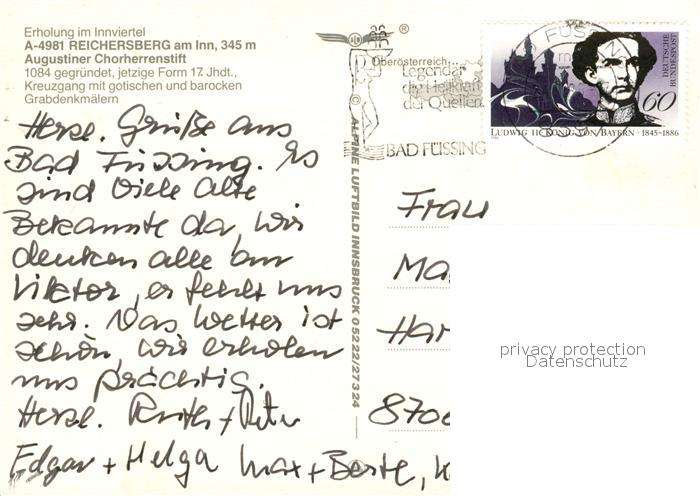 Erholung im Innviertel
A-4981 REICHERSBERG am Inn, 345 m
Augustiner Chorherrenstift
1084 gegründet, jetzige Form 17. Jhdt.,
Kreuzgang mit gotischen und barocken
Grabdenkmälern
Oberösterreich
®
Herzl. Grüße aus
Bad Füssing. Es
sind viele alte
Bekannte da, wir
denken alle an
Viktor, er fehlt uns
sehr. Das Wetter ist
schön, wir erholen
uns prächtig.
Herzl. Ruth + Peter
Edgar + Helga Max + Beate,
© ALPINE LUFTBILD INNSBRUCK 05222/27324
Legendär
die Heilkraft
der Quellen
BAD FÜSSING
FÜSSIN
DEUTSCHE
BUNDESPOST
60
LUDWIG II. KÖNIG VON BAYERN · 1845-1886
Frau
Ma
Har
870
privacy protection
Datenschutz